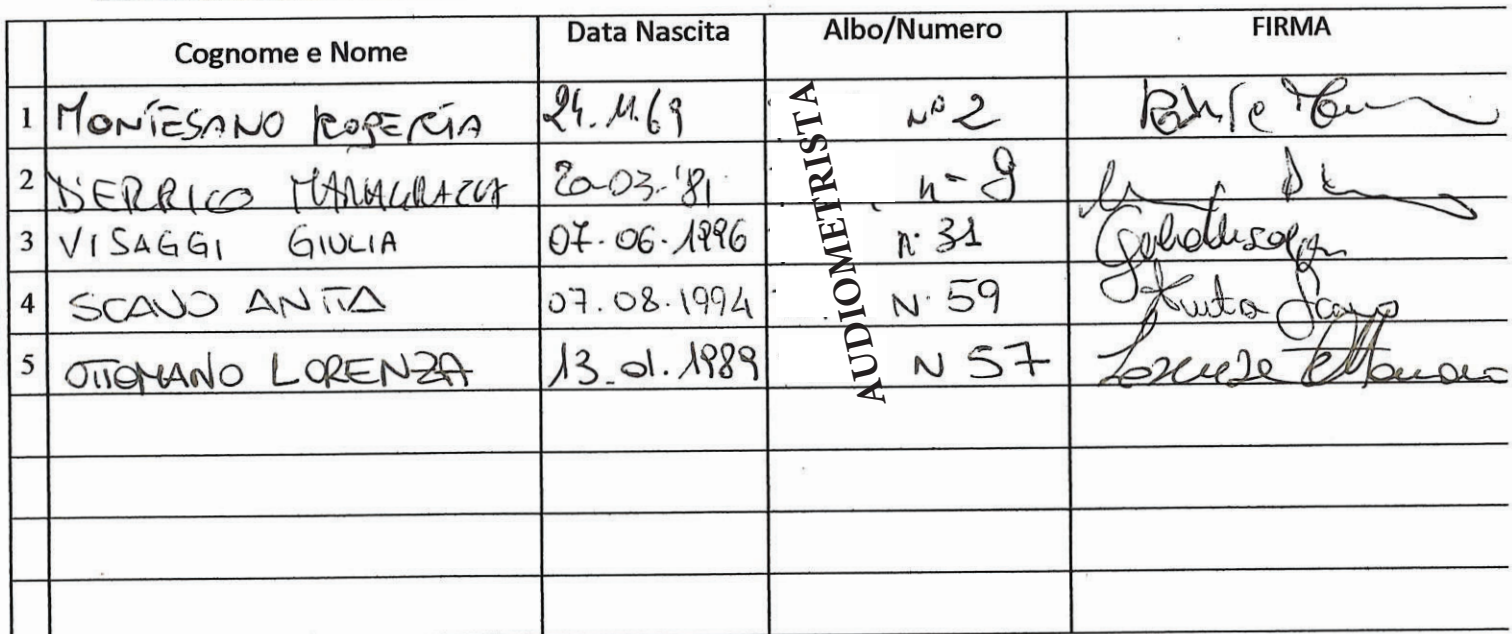 Cognome e Nome Data Nascita Albo/Numero FIRMA
1 MONTESANO ROBERTA 24.11.69 n° 2
2 D'ERRICO MARIAGRAZIA 20-03-'81 n- 9
3 VISAGGI GIULIA 07.06.1996 n. 31
4 SCAVO ANITA 07.08.1994 N. 59 Anita Scavo
5 OTTOMANO LORENZA 13.01.1989 N 57 Lorenza Ottomano
AUDIOMETRISTA